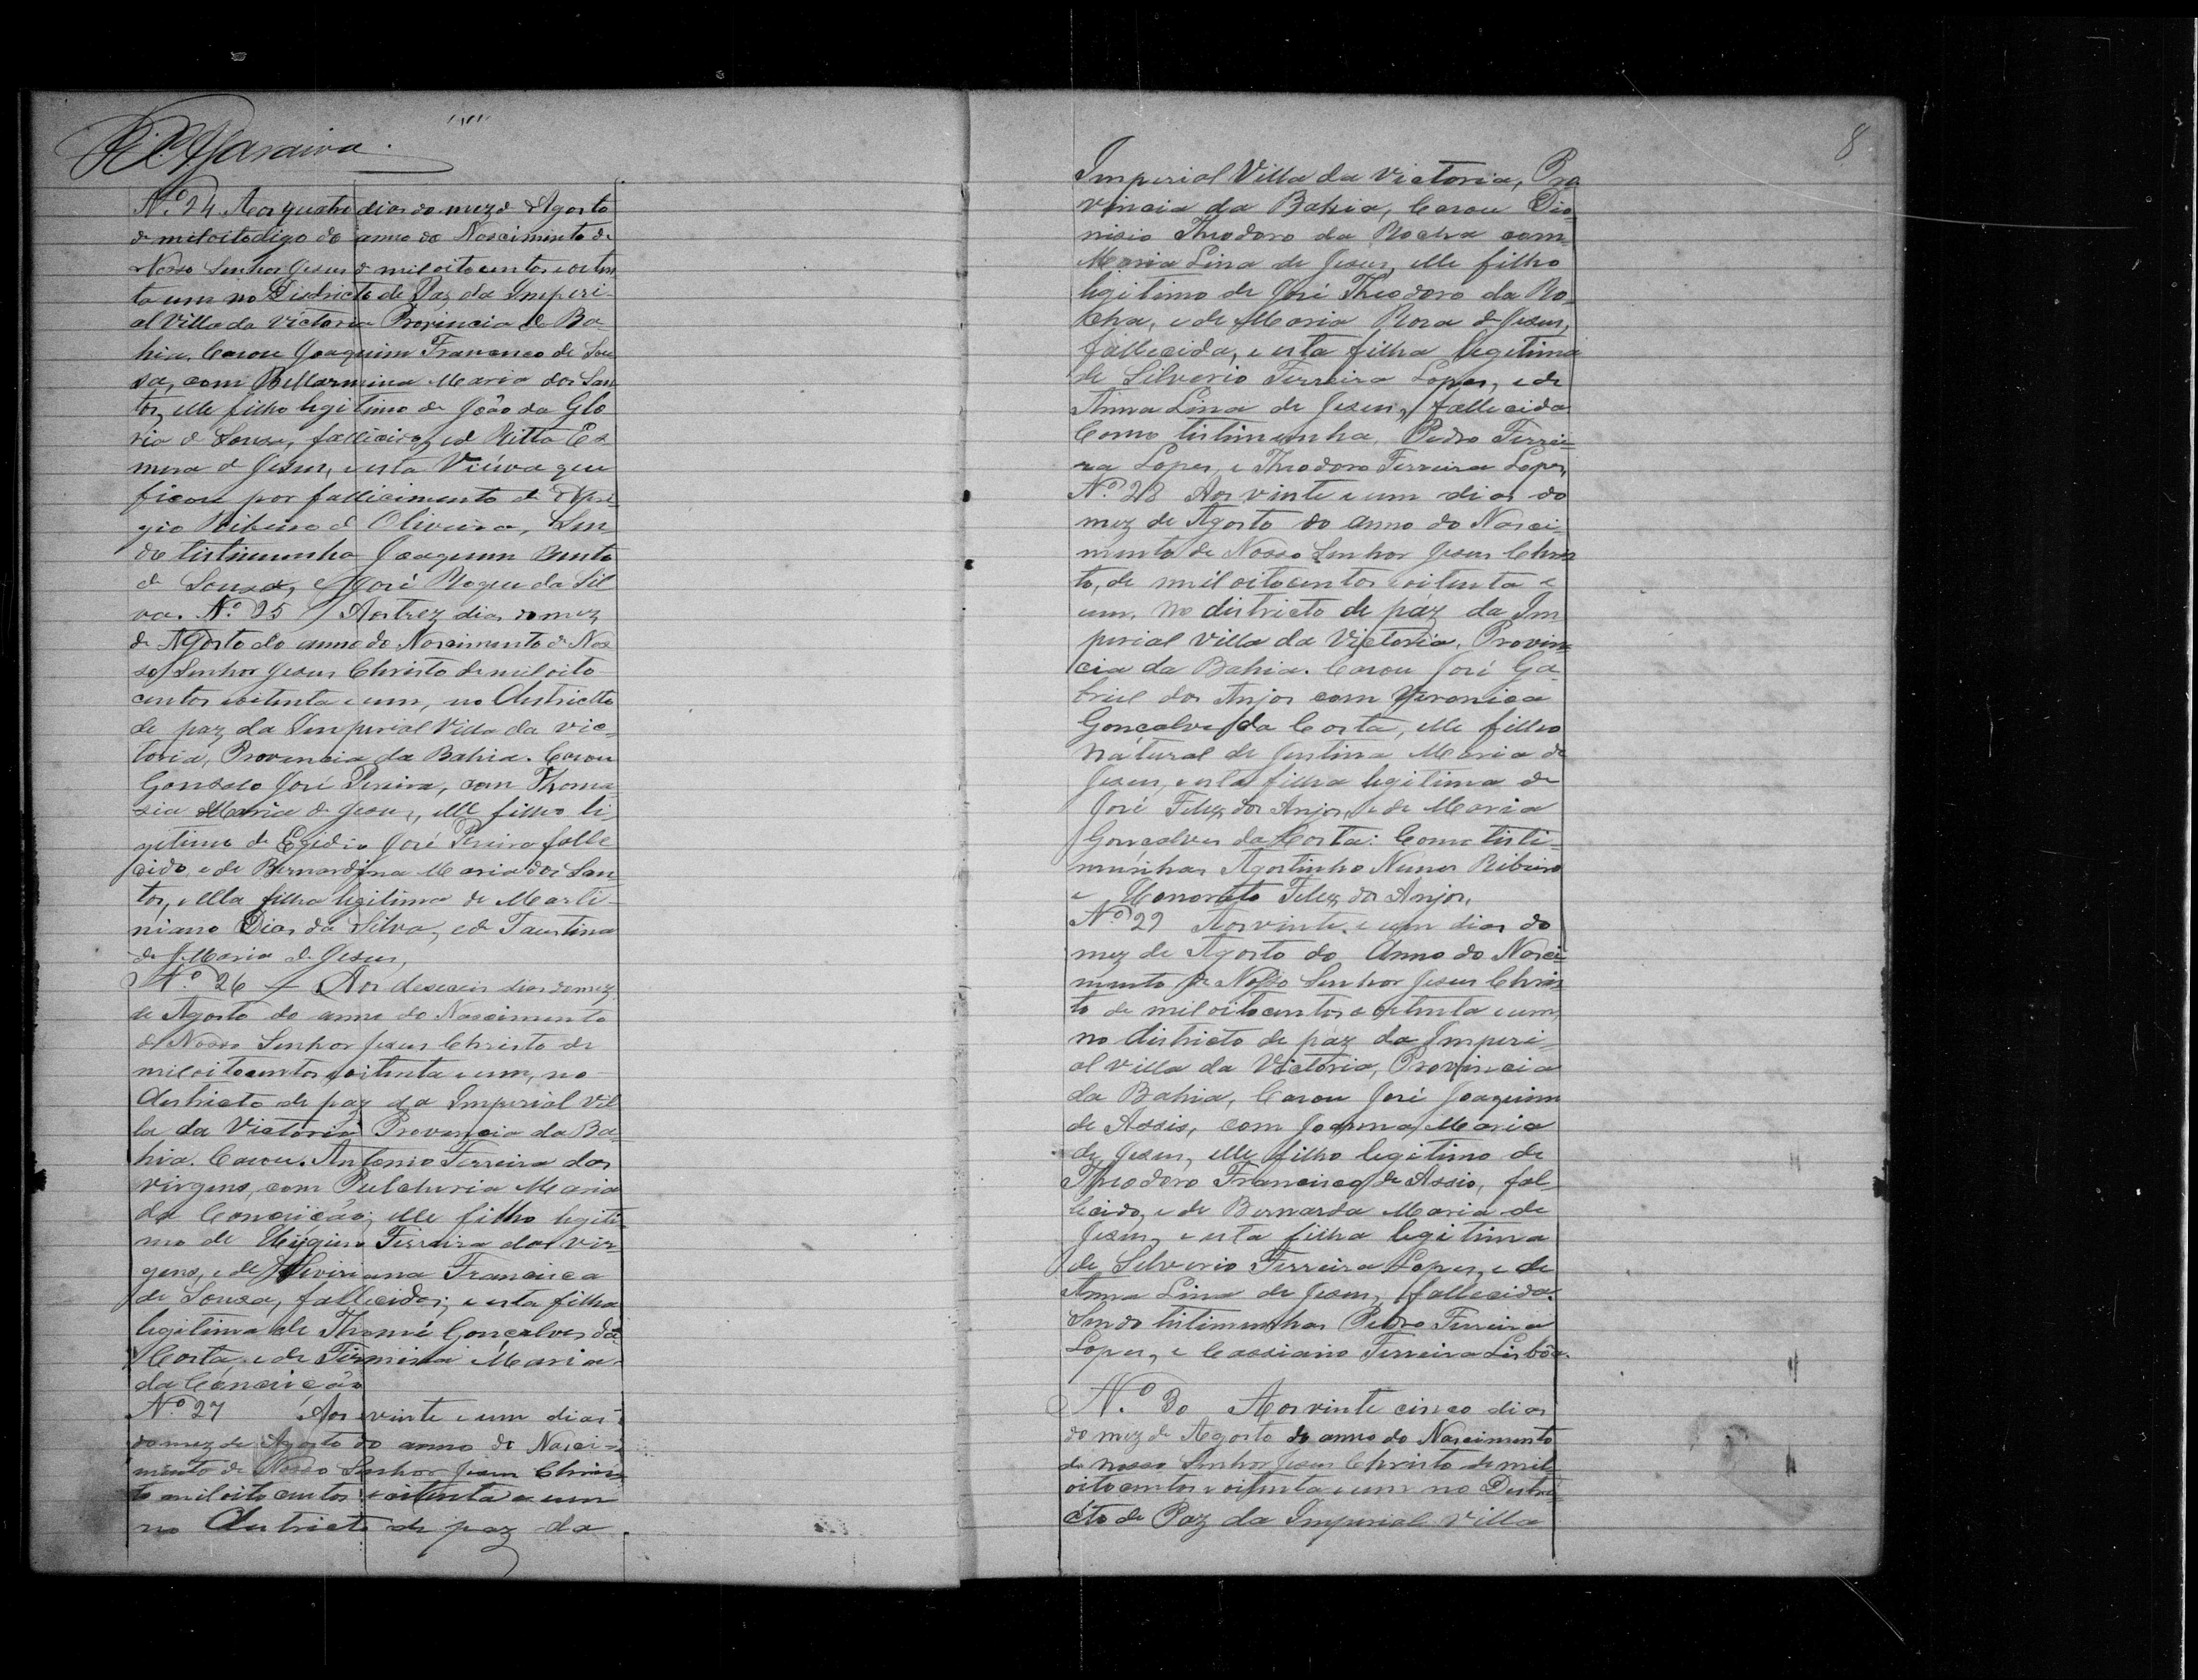 Saraiva.
Nº 24 Aos quatro dias do mez d Agosto
de mil oito digo do anno do Nascimento de
Nosso Senhor Jesus d mil oito centos e oiten
ta um no Districto de Paz da Imperi-
al Villa da Victoria Provincia da Ba-
hia. Casou Joaquim Francisco de Sou
sa, com Bellarmina Maria dos San
tos, elle filho legitimo de João da Glo
ria d Sousa, fallecido, ed Ritta
d Jesus, e esta Viuva que
ficou por fallicimento d
gio Ribeiro d Oliveira, Sen-
do tistimunha Joaquim Bento
d Sousa, e José Roque da Sil
va. Nº 25 Aos trez dias do mez
de Agosto do anno do Nascimento de Nos
so Senhor Jesus Christo de mil oito
centos e oitenta e um, no districto
de paz da Imperial Villa da Vic-
toria, Provincia da Bahia. Casou
Gonsalo José Pereira, com Thoma-
sia Maria d Jesus, elle filho li-
gitimo de Egidio José Pereira falle
cido e de Bernardina Maria dos San
tos, e Ella filha legitima de Marti-
niano Dias da Silva, e de Faustina
de Maria d Jesus,
Nº 26 Aos deseseis dias do mez
de Agosto do anno do Nascimento
d Nosso Senhor Jesus Christo de
mil oitocentos e oitenta e um, no
districto de paz da Imperial Vil
la da Victoria Provincia da Ba-
hia. Casou. Antonio Ferreira das
virgens, com Pulcheria Maria
da Conceicão; elle filho legiti
mo de Hygino Ferreira das vir-
gens, e de Siviriana Francisca
de Sousa, fallecidos; e esta filha
legitima de Thomé Gonçalves da
Costa, e de Firmina Maria
da Conceicão
Nº 27 Aos vinte e um dias
do mez de Agosto do anno do Nasci-
mento de Nosso Senhor Jesus Chris
to mil oito centos e oitenta e um
no districto de paz da
8
Imperial Villa da Victoria, Pro
vincia da Bahia, Casou Dio
nisio Theodoro da Rocha com
Maria Lina de Jesus, elle filho
legitimo de José Theodoro da Ro-
cha, e de Maria Rosa d Jesus,
fallecida, e esta filha legitima
de Silverio Ferreira Lopes, e de
Anna Lina de Jesus, fallecida
Como tistimunha, Pedro Ferrei-
ra Lopes, e Theodoro Ferreira Lopes,
Nº 28 Aos vinte e um dias do
mez de Agosto do anno do Nasci-
mento de Nosso Senhor Jesus Chris
to, de mil oitocentos e oitenta e
um, no districto de paz da Im
perial Villa da Victoria, Provin-
cia da Bahia. Casou José Ga-
briel dos Anjos com Veronica
Goncalves da Costa, elle filho
natural de Justina Maria de
Jesus, e esta filha legitima de
José Felis dos Anjos, e de Maria
Goncalves da Costa: Como tisti-
munhas Agostinho Nunes Ribeiro
e Honorato Felis dos Anjos,
Nº 29 Aos vinte e um dias do
mez de Agosto do Anno do Nasci-
mento de Nosso Senhor Jesus Chris-
to de mil oitocentos e oitenta e um,
no districto de paz da Imperi-
al villa da Victoria, Provincia
da Bahia, Casou José Joaquim
de Assis, com Joanna Maria
de Jesus, elle filho legitimo de
Theodoro Francisco de Assis, fal-
lecido, e de Bernarda Maria de
Jesus, e esta filha legitima
de Silverio Ferreira Lopes, e de
Anna Lina de Jesus, fallecida.
Sendo tistimunhas Pedro Ferreira
Lopes, e Cassiano Ferreira Lisbôa.
Nº 30 Aos vinte cinco dias
do mez de Agosto do anno do Nascimento
de nosso Senhor Jesus Christo de mil
oitocentos e oitenta e um no Distri-
cto de Paz da Imperial Villa